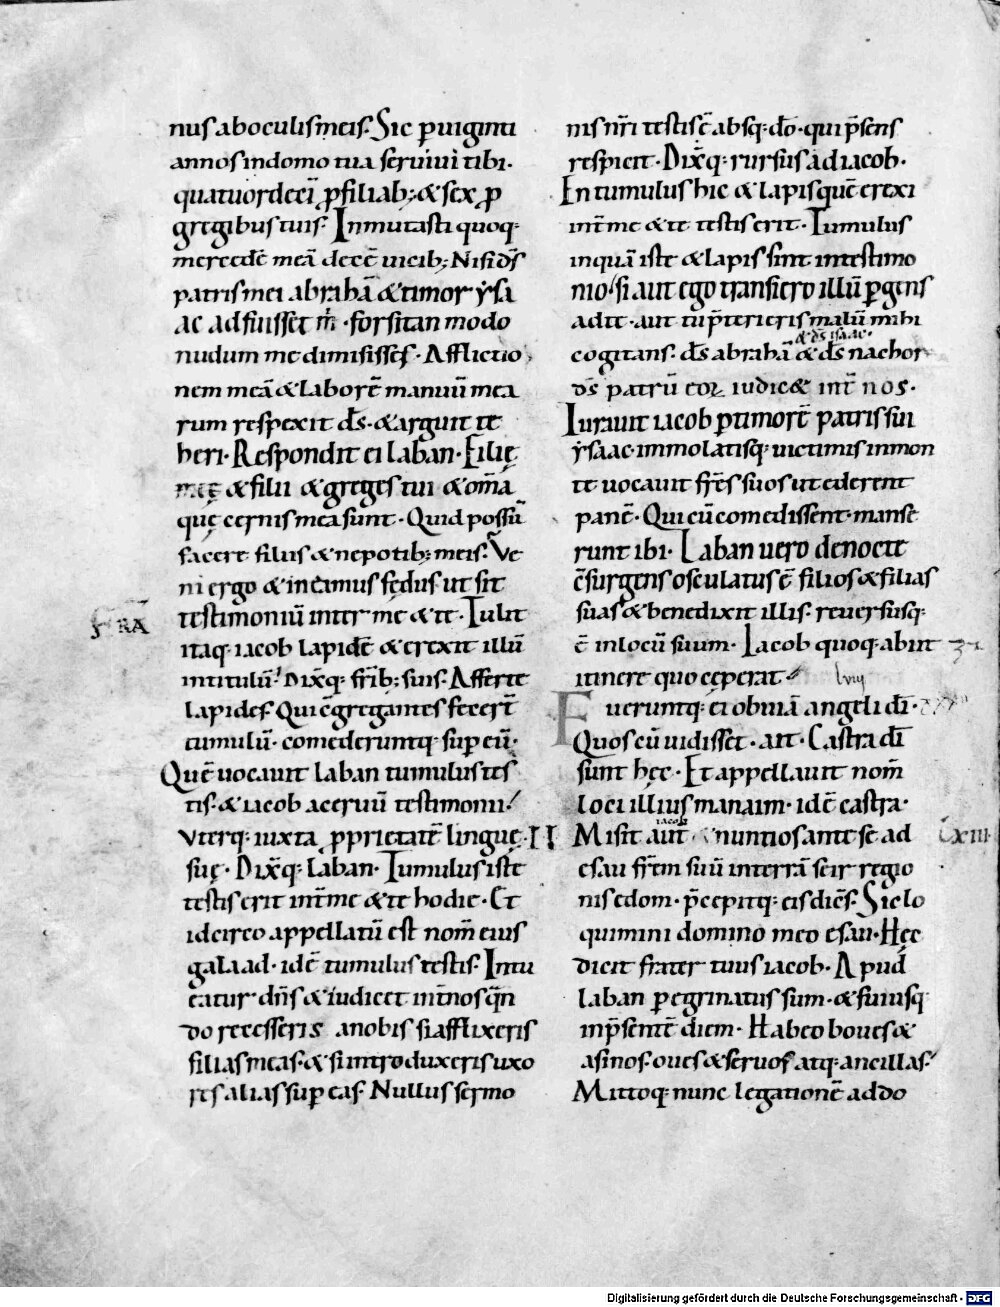 nus ab oculis meis. Sic p̱ uiginti
annos in domo tua seruiui tibi.
quatuordecī p̱ filiab; & sex p̱
gregibus tuis. Inmutasti quoq;
mercedē meā decē uicib; Nisi d̄s
patris mei abrahā & timor ysa
ac adfuisset m̄ · forsitan modo
nudum me dimisisses · Afflictio
nem meā & laborē manuū mea
rum respexit d̄s · & arguit te
heri · Respondit ei laban · Filię
meę & filii & greges tui & om̄a
quę cernis mea sunt · Quid possū
facere filiis & nepotib; meis. Ve
ni ergo & ineamus fędus ut sit
FRĀ
testimoniū inter me & te · Tulit
itaq; iacob lapidē & erexit illū
in titulū. Dix̄q; frīb; suis. Afferte
lapides Qui c̄gregantes fecer̄t
tumulū · comederuntq; sup̱ eū·
Quē uocauit laban tumulus tes
tis · & iacob aceruū testimonii.
Vterq; iuxta p̱prietatē linguę
suę · Dix̄q; laban · Tumulus iste
testis erit int̄ me & te hodie · Et
idcirco appellatū est nom̄ eius
galaad · id ē tumulus testis. Intu
eatur dn̄s & iudicet int̄ nos q̄n
do recesseris a nobis si afflixeris
filias meas · & si introduxeris uxo
res alias sup̱ eas. Nullus sermo
nis nr̄i testis ē absq; dō · qui p̄sens
respicit · Dix̄q; rursus ad iacob ·
En tumulus hic & lapis quē erexi
int̄ me & te testis erit · Tumulus
inquā iste & lapis sint in testimo
nio / si aut ego transiero illū p̱gens
ad te · aut tu p̄terieris malū mihi
& d̄s isaac ·
cogitans. d̄s abrahā & d̄s nachor
d̄s patrū eoꝝ iudic& int̄ nos ·
Iurauit iacob p̱ timorē patris sui
ysaac · immolatisq; uictimis in mon
te uocauit fr̄es suos ut ederent
panē · Qui cū comedissent · manse
runt ibi · Laban uero de nocte
c̄surgens osculatus ē filios & filias
suas & benedixit illis. reuersusq;
ē in locū suum · Iacob quoq; abiit
itinere quo ceperat
lviii
Fueruntq; ei obuiā angeli dī·
Quos cū uidisset · ait · Castra dī
sunt hęc · Et appellauit nom̄
loci illius manaim · id ē castra ·
iacob
Misit aūt nuntios ante se ad
esau fr̄em suū in terrā seir regio
nis edom · p̄cepitq; eis dicēs. Sic lo
quimini domino meo esau · Hęc
dicit frater tuus iacob · Apud
laban p̱egrinatus sum · & fui usq;
in p̄sentē diem · Habeo boues &
asinos · oues & seruos atq; ancillas.
Mittoq; nunc legationē ad do
Digitalisierung gefördert durch die Deutsche Forschungsgemeinschaft - DFG